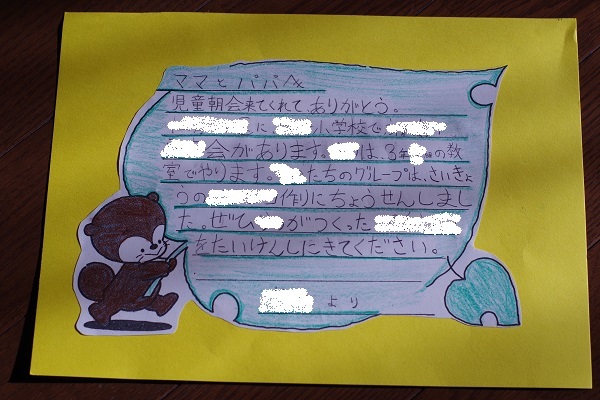 ママとパパへ
児童朝会来てくれてありがとう。
に 小学校で
会があります。 は、3年 の教
室でやります。 たちのグループは、さいきょ
うの 作りにちょうせんしまし
た。ぜひ がつくった
をたいけんしにきてください。
より